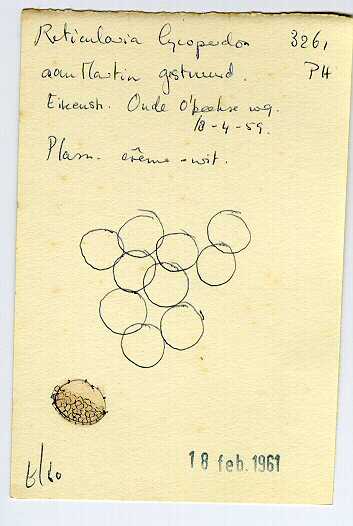 Reticularia lycoperdon 3261
aan Martin gestuurd. PH
Eikenst. Oude
18-4-59.
Plasm. crême-wit.
t/60
18 feb. 1961